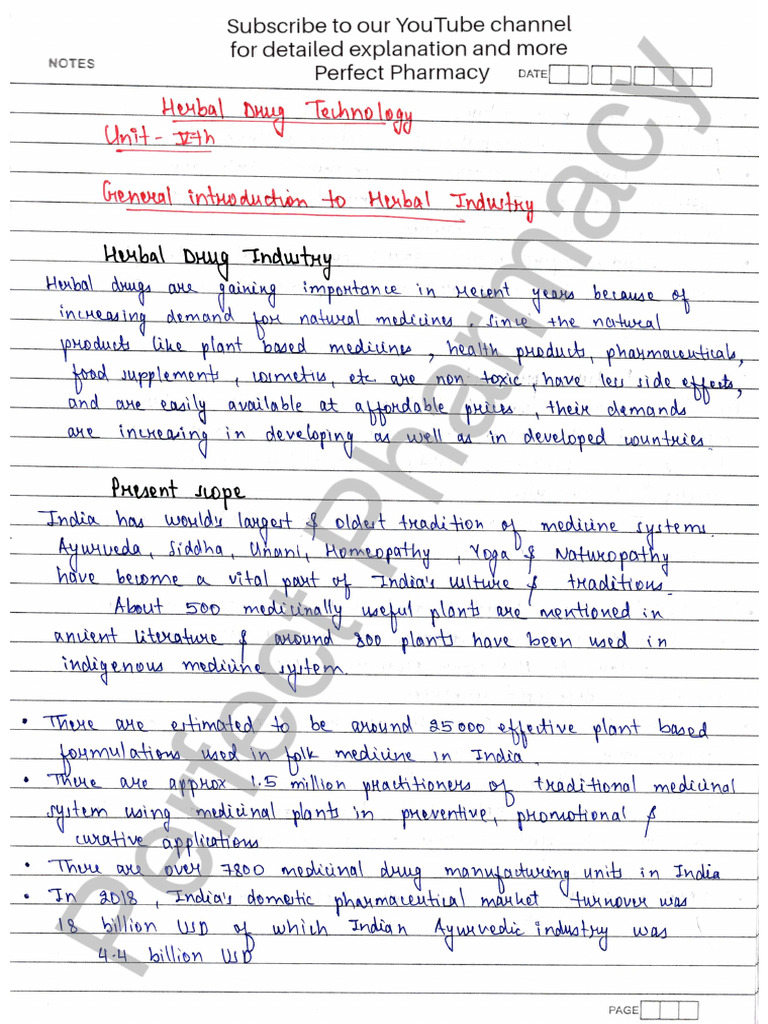 Subscribe to our YouTube channel
for detailed explanation and more
Perfect Pharmacy
NOTES
DATE
Herbal Drug Technology
Unit - Vth
General introduction to Herbal Industry
Herbal Drug Industry
Herbal drugs are gaining importance in recent years because of
increasing demand for natural medicines. Since the natural
products like plant based medicines, health products, pharmaceuticals,
food supplements, cosmetics, etc. are non toxic, have less side effects,
and are easily available at affordable prices, their demands
are increasing in developing as well as in developed countries.
Present scope
India has world's largest & oldest tradition of medicine systems.
Ayurveda, Siddha, Unani, Homeopathy, Yoga & Naturopathy
have become a vital part of India's culture & traditions.
About 500 medicinally useful plants are mentioned in
ancient literature & around 800 plants have been used in
indigenous medicine system.
• There are estimated to be around 25000 effective plant based
formulations used in folk medicine in India.
• There are approx 1.5 million practitioners of traditional medicinal
system using medicinal plants in preventive, promotional &
curative applications.
• There are over 7800 medicinal drug manufacturing units in India
• In 2018, India's dometic pharmaceutical market turnover was
18 billion USD of which Indian Ayurvedic industry was
4.4 billion USD
PAGE
Perfect Pharmacy